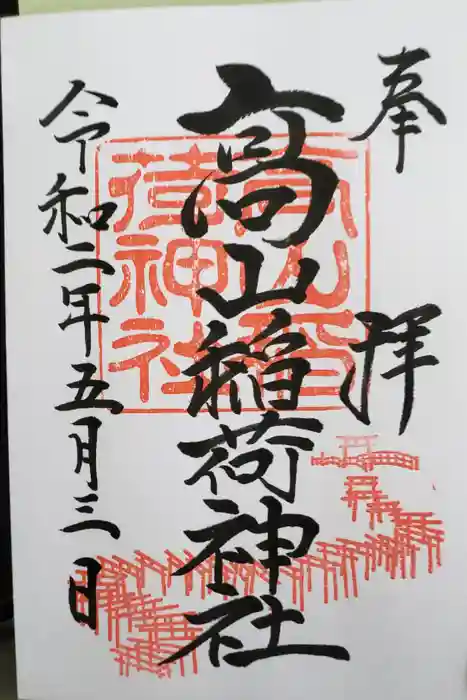 奉拝
高山稲荷神社
高山稲荷神社
令和二年五月三日